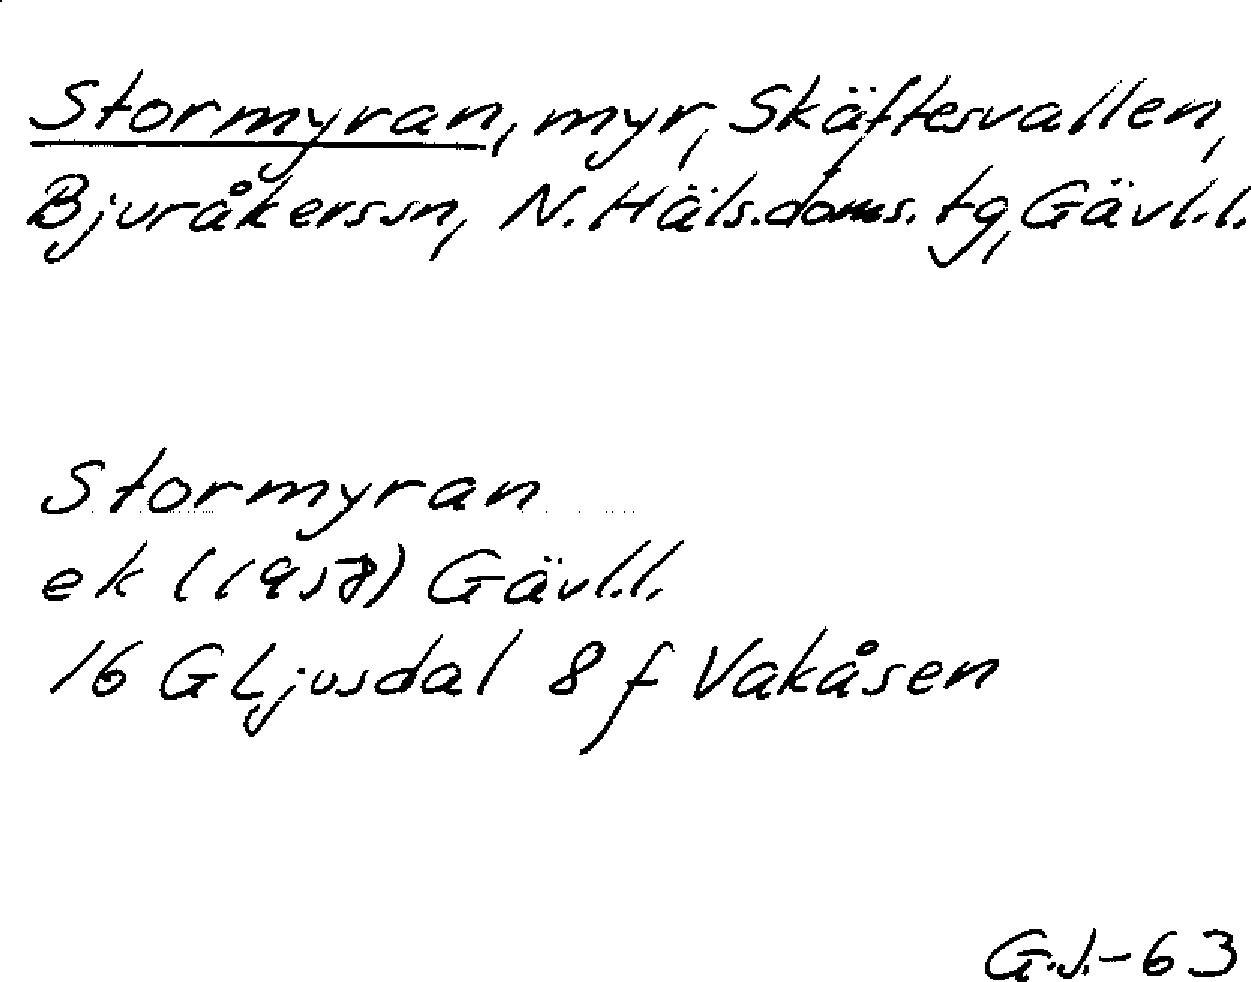 Stormyran, myr, Skäftesvallen,
Bjuråkers sn, N. Häls. doms. tg, Gävl.l.
Stormyran
ek (1958) Gävl.l.
16 G Ljusdal 8 f Vakåsen
G.J.-63